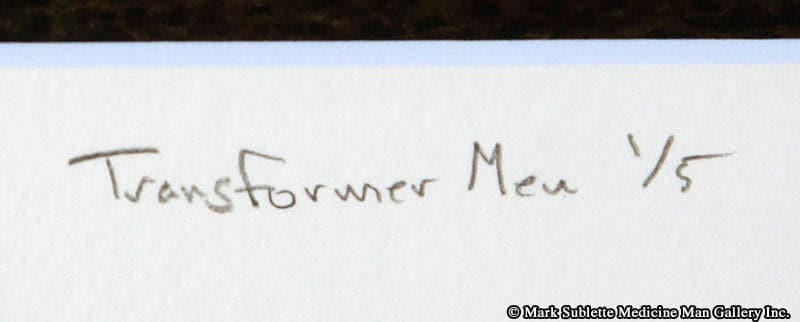 Transformer Men 1/5
© Mark Sublette Medicine Man Gallery Inc.